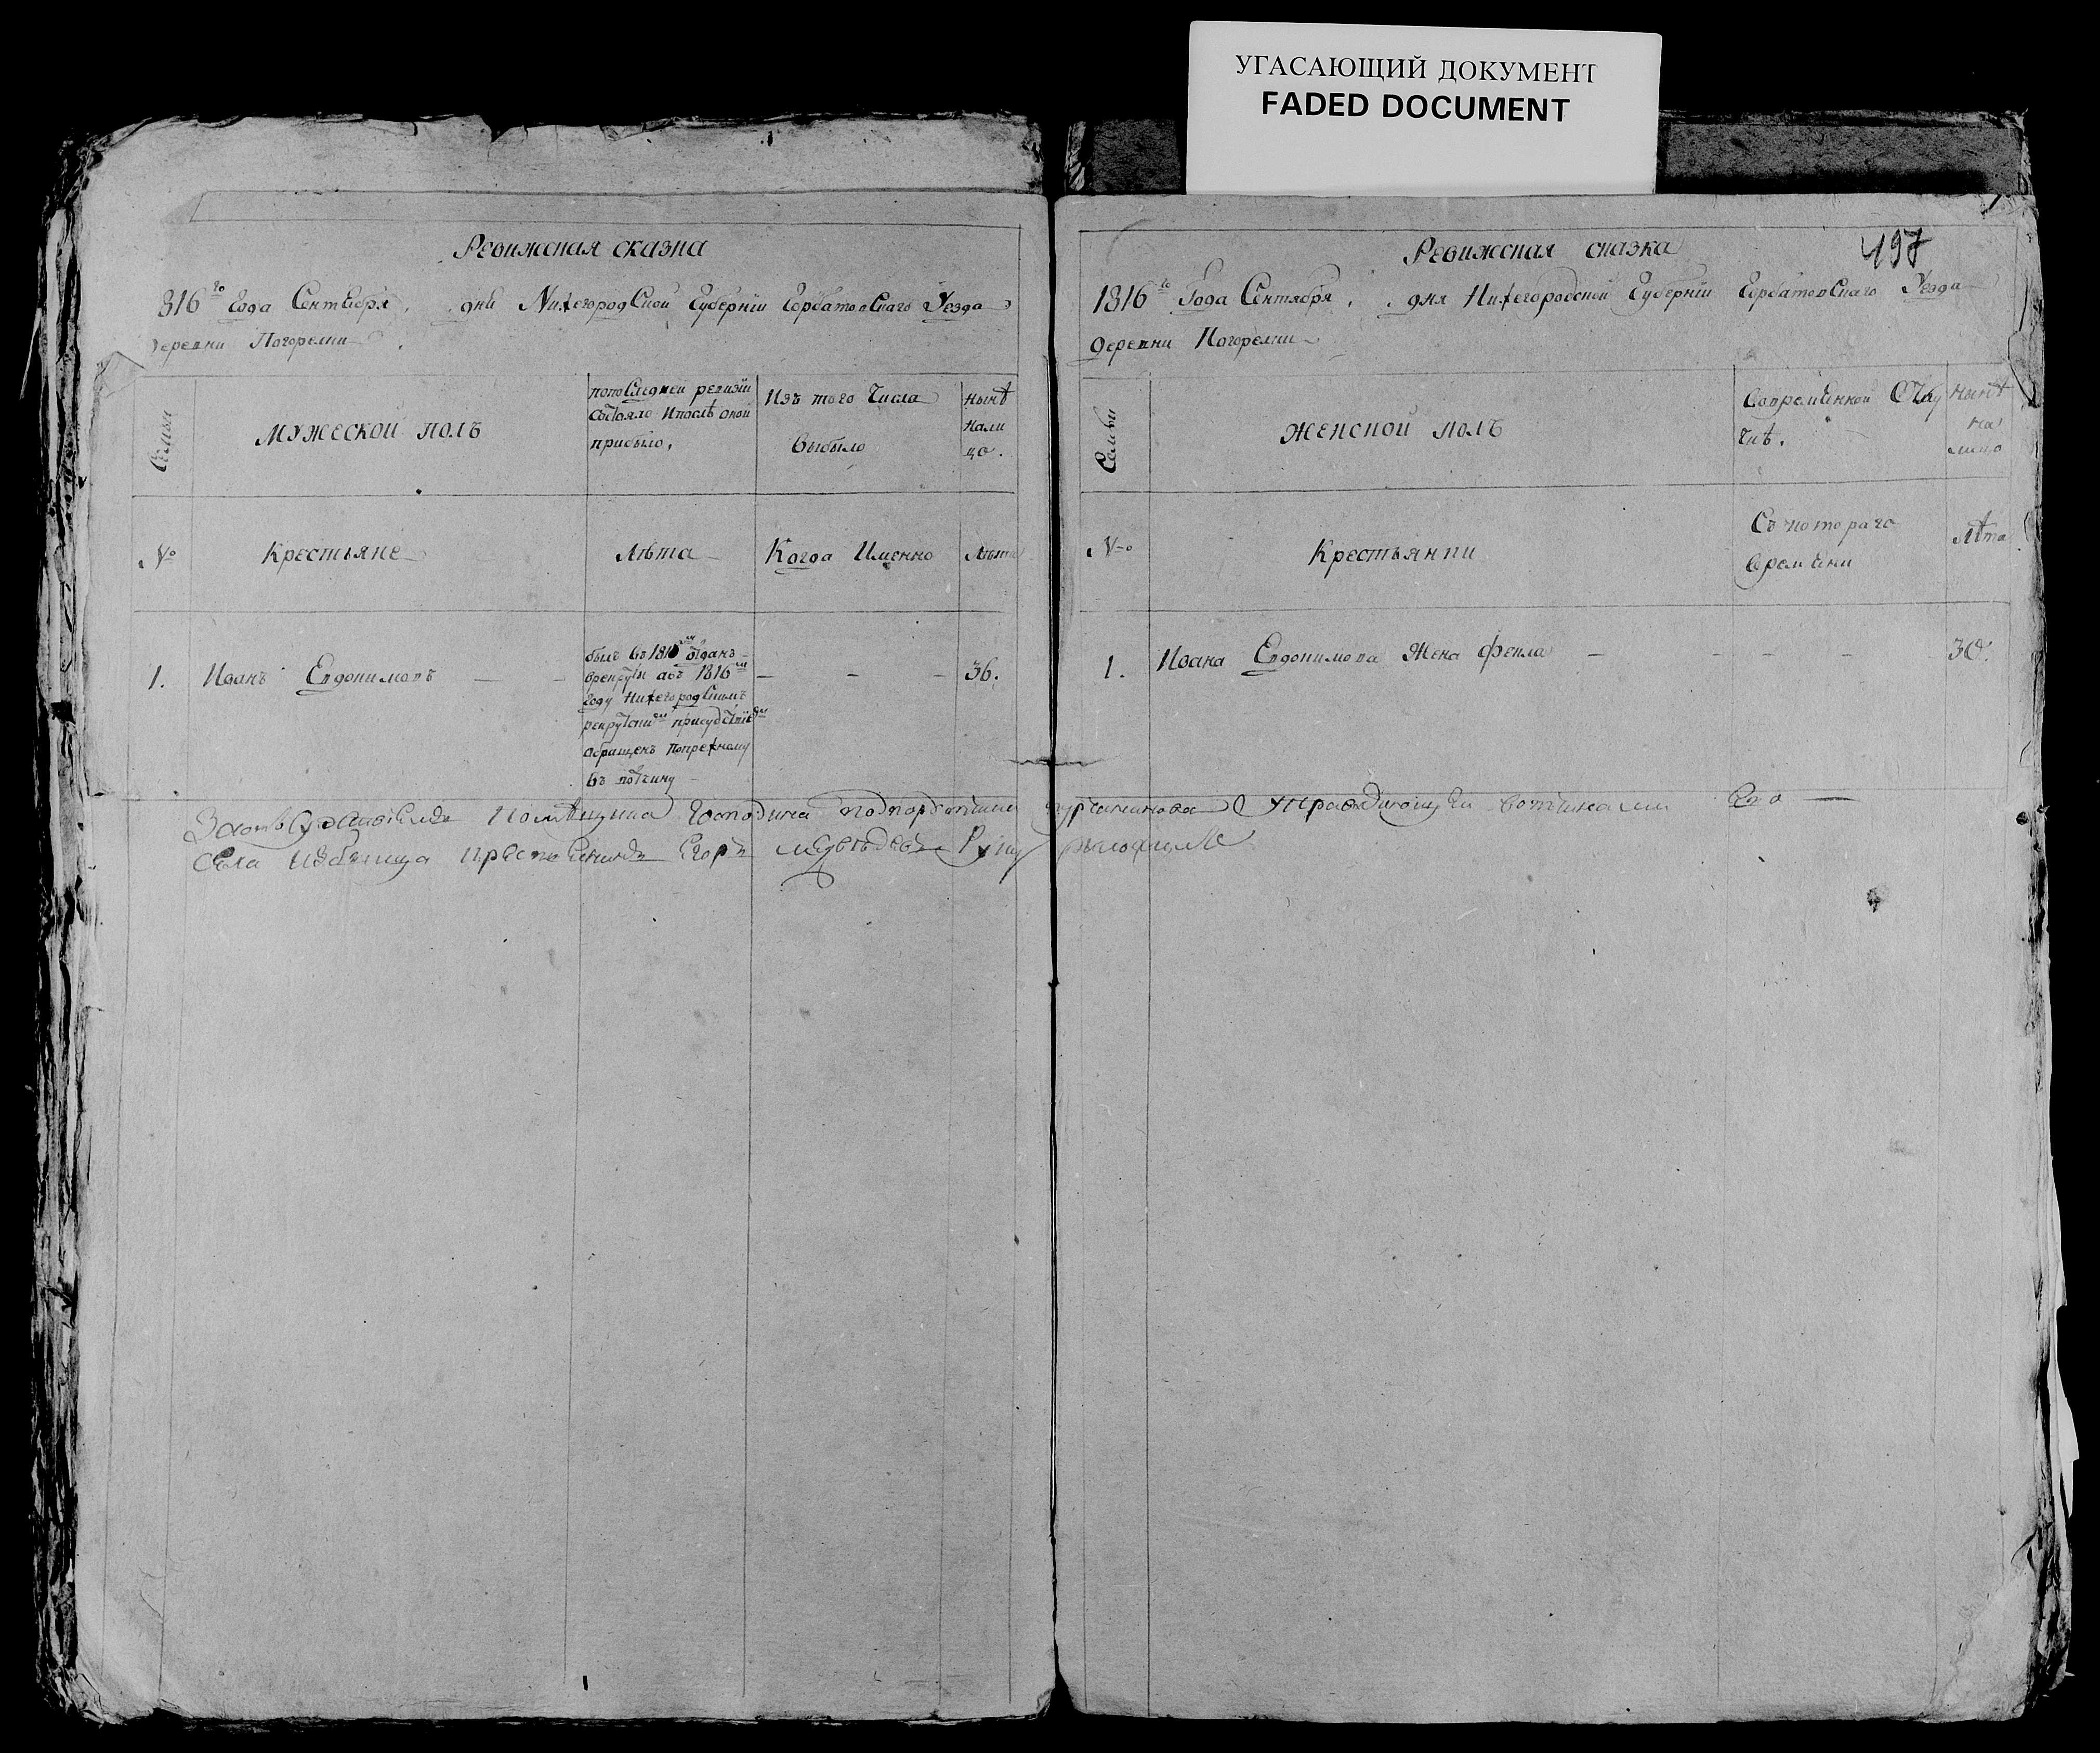 УГАСАЮЩИЙ ДОКУМЕНТ
FADED DOCUMENT
Ревижская сказка
816го Года Сентебря, дни Нижегородской Губернїи Горбатовскаго Уезда
деревни Погорелки
Семьи
Мужеской полъ
попоследней ревизїи
состояло ипослѣ оной
прибыло,
Изъ того Числа
выбыло
нынѣ
нали
цо.
№
Крестьяне
Лѣта
Когда Именно
Лѣта
1. Иванъ Евдокимовъ
былъ въ 1810м отданъ
врекруты авъ 1816м
году Нижегородскимъ
рекрутскимъ присудствїемъ
обращенъ попрежнему
въ вотчину
36.
497
Ревижская сказка
1816го Года Сентября, дня Нижегородской Губернїи Горбатовскаго Уезда
деревни Погорелки
Семьи
Женской полъ
Вовремѣнной Отлу
чкѣ.
нынѣ
на
лицо
№
Крестьянки
Съ котораго
времѣни
Лѣта
1. Ивана Евдокимова Жена Фекла
30.
помѣщика Господина подпорутчика управляющїи вотчинами Его
Села крестьенинъ Егоръ медведевъ Руку приложилъ